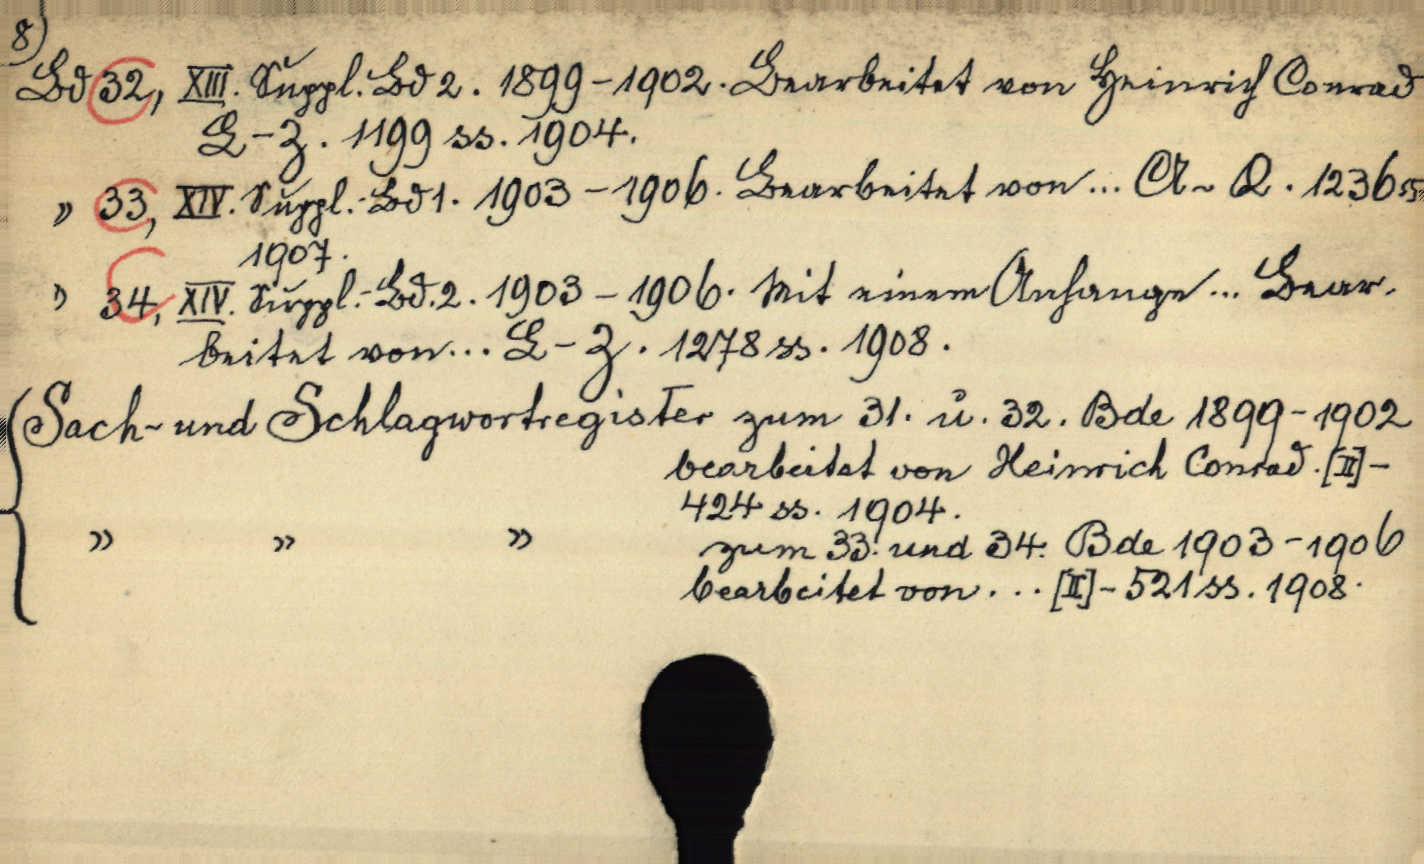 8)
Bd 32, XIII. Suppl. Bd 2. 1899-1902. Bearbeitet von Heinrich Conrad
L-Z. 1199 ss. 1904.
" 33, XIV. Suppl.-Bd 1. 1903-1906. Bearbeitet von... A-K. 1236 ss
1907.
" 34, XIV. Suppl.-Bd. 2. 1903-1906. Mit einem Anhange... Bear-
beitet von... L-Z. 1278 ss. 1908.
Sach- und Schlagwortregister zum 31. u. 32. Bde 1899-1902
bearbeitet von Heinrich Conrad. [II]-
424 ss. 1904.
" " " zum 33. und 34. Bde 1903-1906
bearbeitet von... [II]-521 ss. 1908.